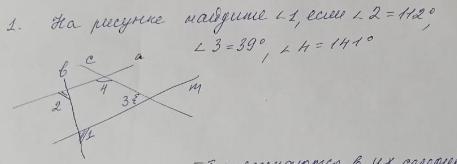 1. На рисунке найдите ∠1, если ∠2 = 112°,
∠3 = 39°, ∠4 = 141°
в с а
4 m
2 3
1